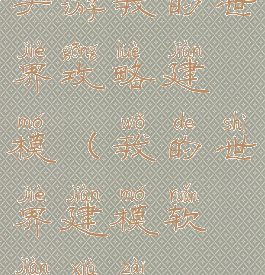 手 游 我 的 世
jiè gōng lüè jiàn
界 攻 略 建
mó wǒ de shì
模 （ 我 的 世
jiè jiàn mó ruǎn
界 建 模 软
jiàn xià zài